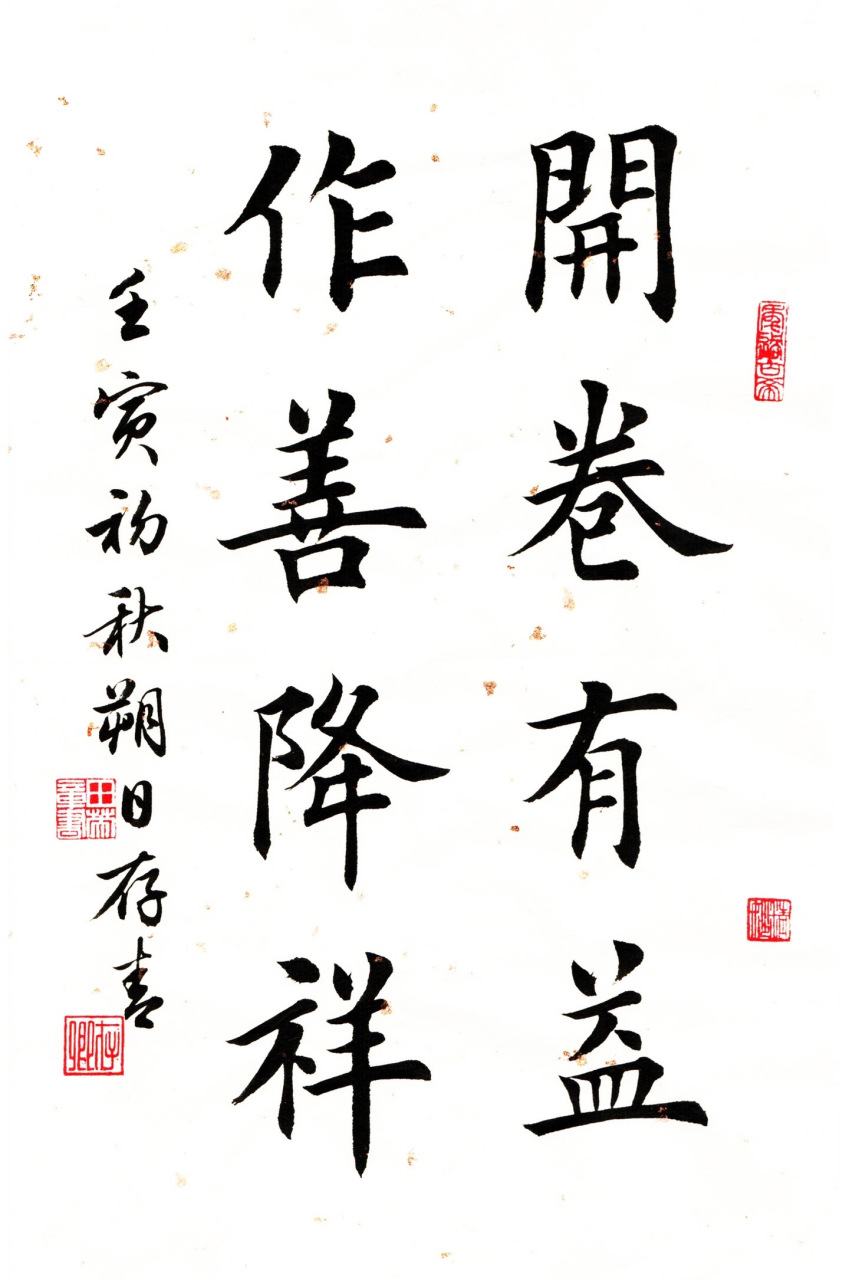 開卷有益
作善降祥
壬寅初秋朔日存青